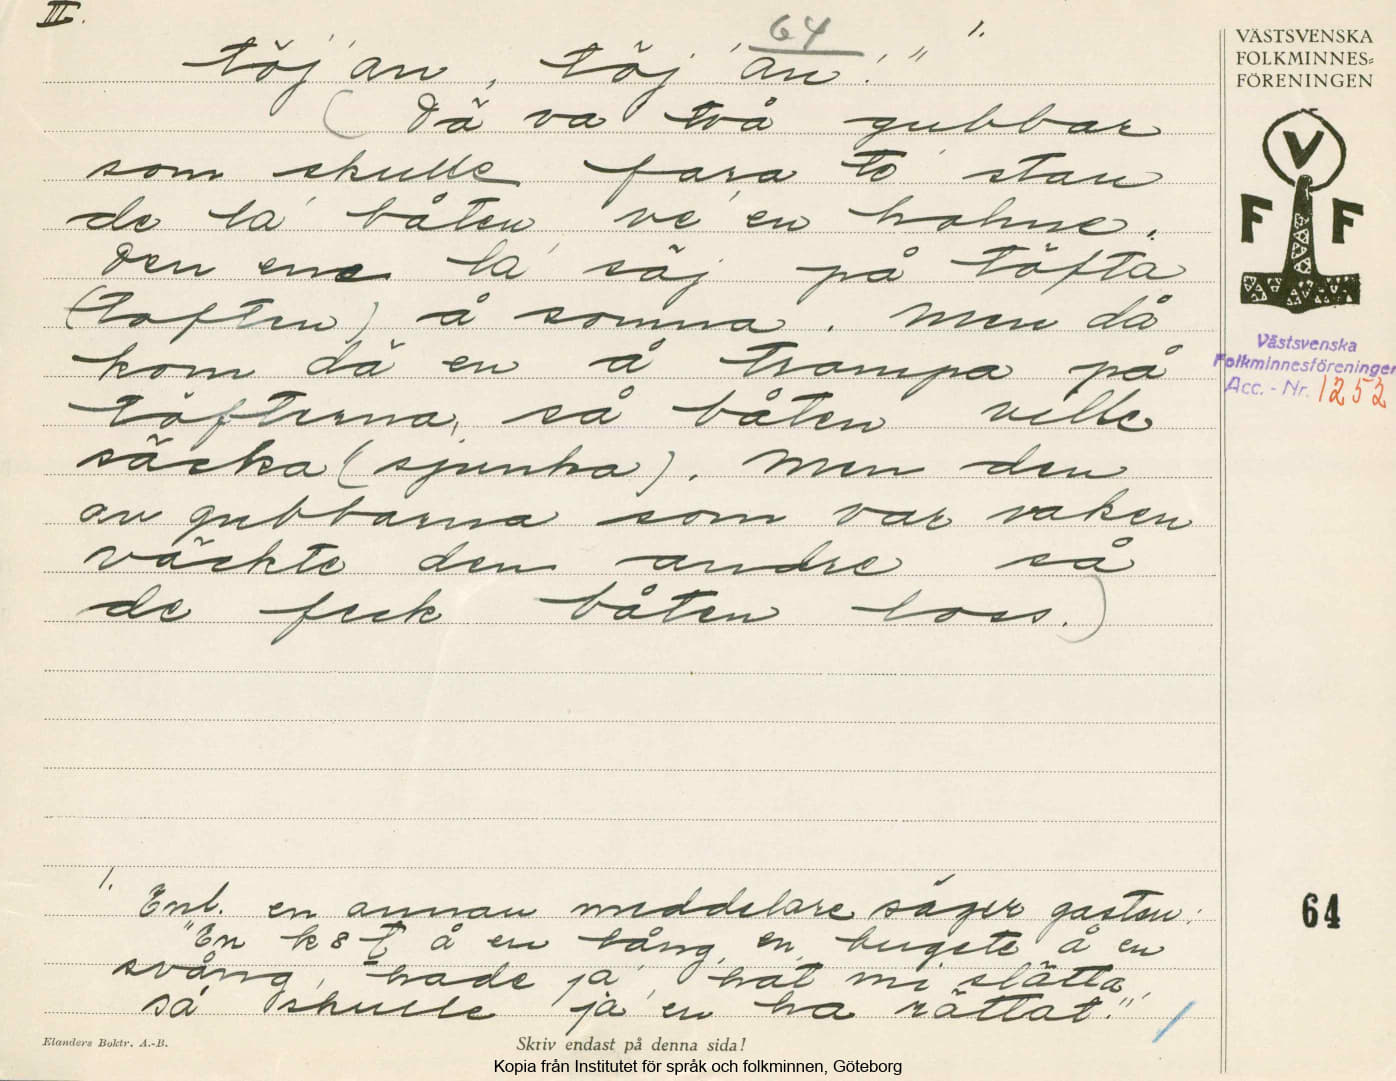 III.
64
töj'an, töj 'an!" 1.
(Dä va två gubbar
som skulle fara te' stan
de la' båten ve' en holme.
Den ene la' säj på töfta
(toften) å somna. Men då
kom dä en å trampa på
töfterna, så båten ville
säcka (sjunka). Men den
av gubbarna som var vaken
väckte den andre så
de feck båten loss.)
1. Enl. en annan meddelare säger gasten:
"En k8t å en lång, en bugete å en
svång, hade ja' hat mi slätta,
så skulle ja' en ha rättat."
VÄSTSVENSKA
FOLKMINNES=
FÖRENINGEN
V
F F
Västsvenska
Folkminnesföreningen
Acc. - Nr. 1252
64
Elanders Boktr. A.-B.
Skriv endast på denna sida!
Kopia från Institutet för språk och folkminnen, Göteborg